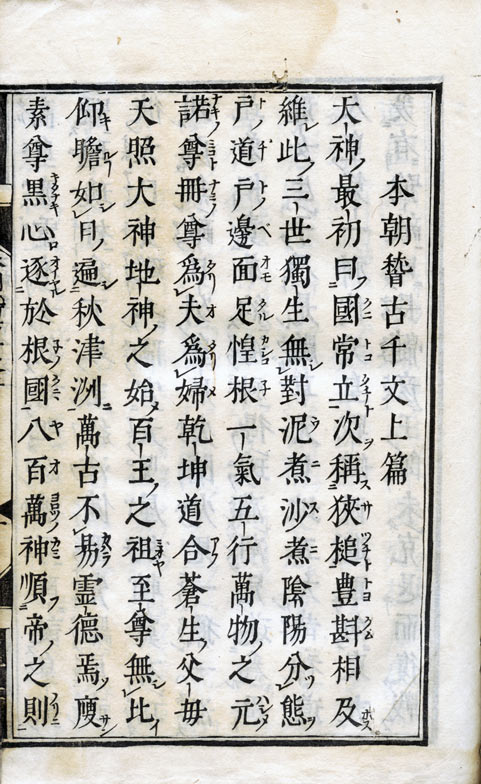 本朝稽古千文上篇
天神最初曰國常立次稱狹槌豊斟相及
維此三世獨生無對泥煮沙煮陰陽分態
戸道戸邊面足惶根一氣五行萬物之元
諾尊冊尊爲夫爲婦乾坤道合蒼生父母
天照大神地神之始百王之祖至尊無比
仰瞻如日遍秋津洲萬古不易霊德焉廋
素尊黒心逐於根國八百萬神順帝之則